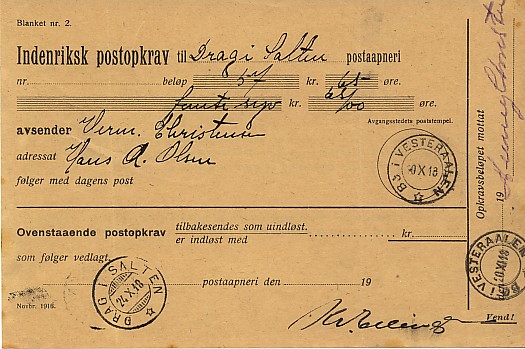 Blanket nr. 2.
Indenriksk postopkrav til Dragi Salten postaapneri
nr. beløp 57 kr. 65 øre.
femti syv kr. 65/100 øre.
Avgangsstedets poststempel.
avsender Verm. Christensen
adressat Hans A. Olsen
følger med dagens post
BØ I VESTERAALEN
X 18
Ovenstaaende postopkrav tilbakesendes som uindløst.
er indløst med kr.
som følger vedlagt.
DRAG I SALTEN
24 X 18
postaapneri den 19
Novbr. 1916.
Vend!
Opkravsbeløpet mottat
19
BØ I VESTERAALEN